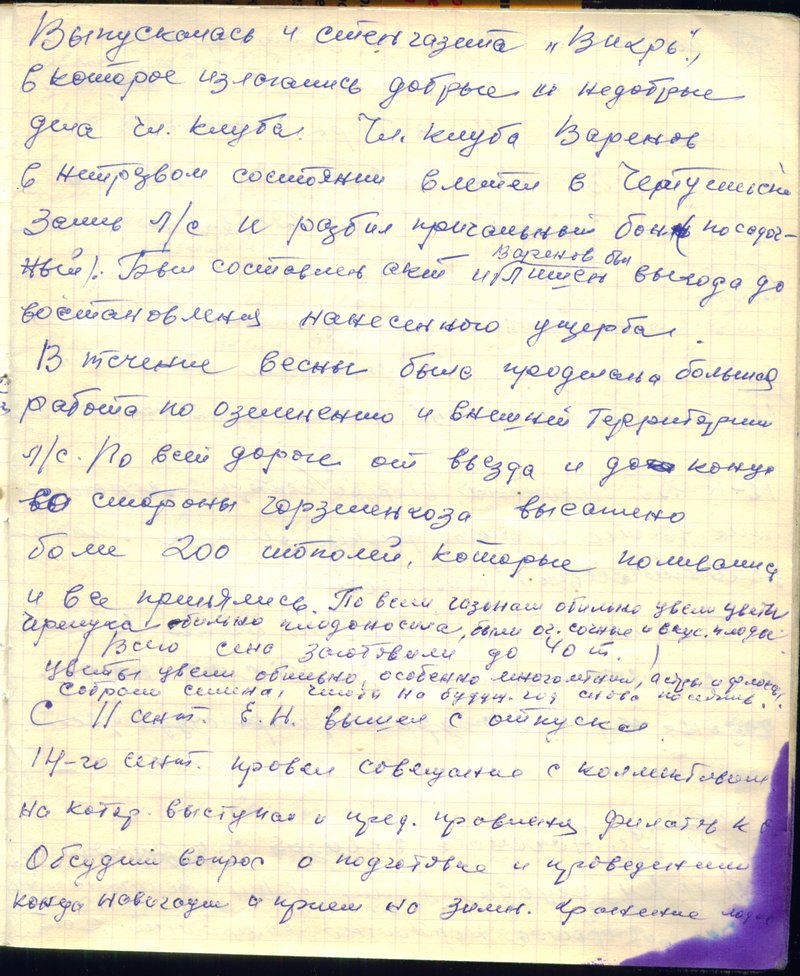 Выпускалась и стенгазета „Вихрь",
в которое излагались добрые и недобрые
дела чл. клуба. Чл. клуба Варенов
в нетрезвом состоянии влетел в
Залив л/с и разбил причальный бон (посадоч-
ный). Был составлен акт и Варенов был лишен выхода до
востановления нанесенного ущерба.
В течение весны была проделана большая
работа по озеленению и внешней территории
л/с. По всей дороге от въезда и до конца
со стороны горзеленхоза высажено
более 200 тополей, которые поливались
и все принялись. По всем газонам обильно цвели цветы
обильно плодоносила, были оч. сочные и вкус. плоды.
(Всего сена заготовили до 40 т.)
Цветы цвели обильно, особенно многолетние, астры и флоксы.
Собрали семена, чтобы на будущ. год снова посадить.
С 11 сент. Е.Н. вышел с отпуска.
14-го сент. провел совещание с коллективом
на котор. выступал и пред. правления Филатов
Обсудили вопрос о подготовке и проведении
конца навигации и прием на зимн. хранение